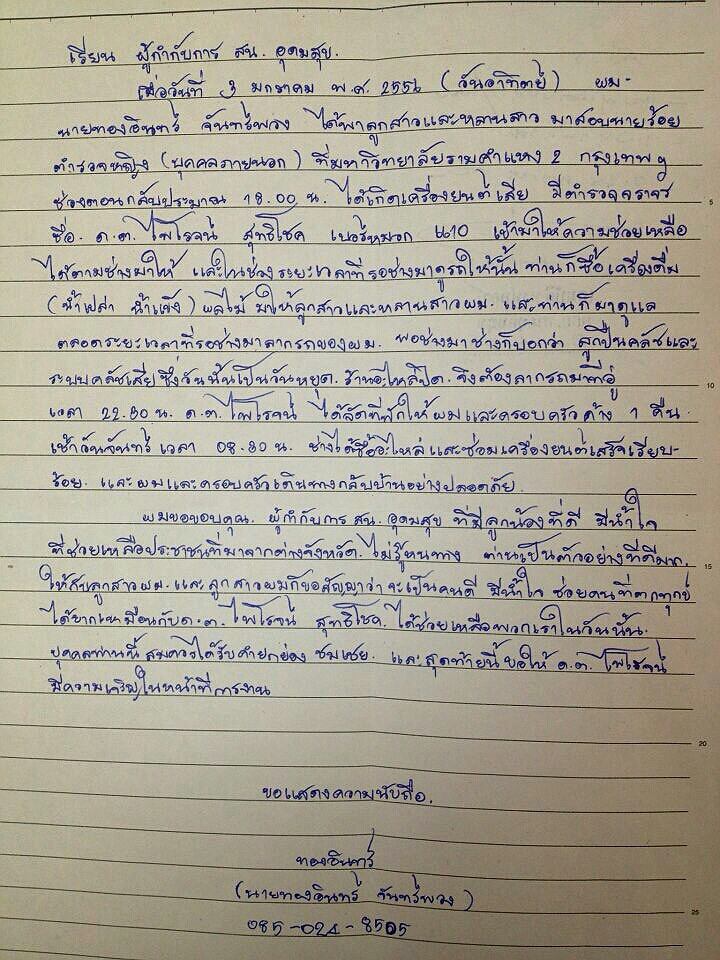 เรียน ผู้กำกับการ สน. อุดมสุข.
เมื่อวันที่ 3 มกราคม พ.ศ. 2556 (วันอาทิตย์) ผม-
นายทองอินทร์ จันทร์พวง ได้พาลูกสาวและหลานสาว มาสอบนายร้อย
ตำรวจหญิง (บุคคลภายนอก) ที่มหาวิทยาลัยรามคำแหง 2 กรุงเทพฯ
ช่วงตอนกลับประมาณ 18.00 น. ได้เกิดเครื่องยนต์เสีย มีตำรวจจราจร
ชื่อ. ด.ต. ไพโรจน์ สุทธิโชค เบอร์หมวก 4210 เข้ามาให้ความช่วยเหลือ
ได้ตามช่างมาให้ และในช่วงระยะเวลาที่รอช่างมาดูรถให้นั้น ท่านก็ซื้อเครื่องดื่ม
(น้ำเปล่า น้ำแข็ง) ผลไม้ มาให้ลูกสาวและหลานสาวผม. และท่านก็มาดูแล
ตลอดระยะเวลาที่รอช่างมาลากรถของผม. พอช่างมาช่างก็บอกว่า ลูกปืนคลัชและ
ระบบคลัชเสียซึ่งวันนั้นเป็นวันหยุด. ร้านอะไหล่ปิด. จึงต้องลากรถมาที่อู่
เวลา 22.30 น. ด.ต. ไพโรจน์ ได้จัดที่พักให้ผมและครอบครัวค้าง 1 คืน.
เช้าวันจันทร์เวลา 08.30 น. ช่างได้ซื้ออะไหล่และซ่อมเครื่องยนต์เสร็จเรียบ-
ร้อย. และผมและครอบครัวเดินทางกลับบ้านอย่างปลอดภัย.
ผมขอขอบคุณ. ผู้กำกับการ สน. อุดมสุข ที่มีลูกน้องที่ดี มีน้ำใจ
ที่ช่วยเหลือประชาชนที่มาจากต่างจังหวัด. ไม่รู้หนทาง ท่านเป็นตัวอย่างที่ดีมาก.
ให้กับลูกสาวผม. และลูกสาวผมก็ขอสัญญาว่าจะเป็นคนดี มีน้ำใจ ช่วยคนที่ตกทุกข์
ได้ยากเหมือนกับ ด.ต. ไพโรจน์ สุทธิโชค. ได้ช่วยเหลือพวกเราในวันนั้น.
บุคคลท่านนี้ สมควรได้รับคำยกย่อง ชมเชย. และสุดท้ายนี้ ขอให้ ด.ต. ไพโรจน์
มีความเจริญในหน้าที่การงาน
ขอแสดงความนับถือ.
ทองอินทร์
(นายทองอินทร์ จันทร์พวง)
085-024-8505